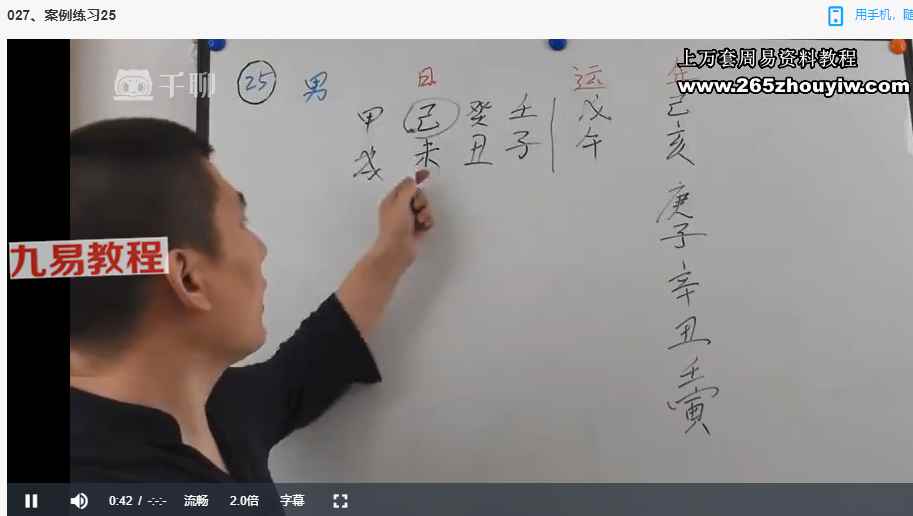 027、案例练习25
用手机，随
千聊
上万套周易资料教程
www.265zhouyiw.com
九易教程
25 男
日 运 年
甲 己 癸 壬 戊 己
戌 未 丑 子 午 亥
庚
子
辛
丑
壬
寅
0:42 / -:-:- 流畅 2.0倍 字幕